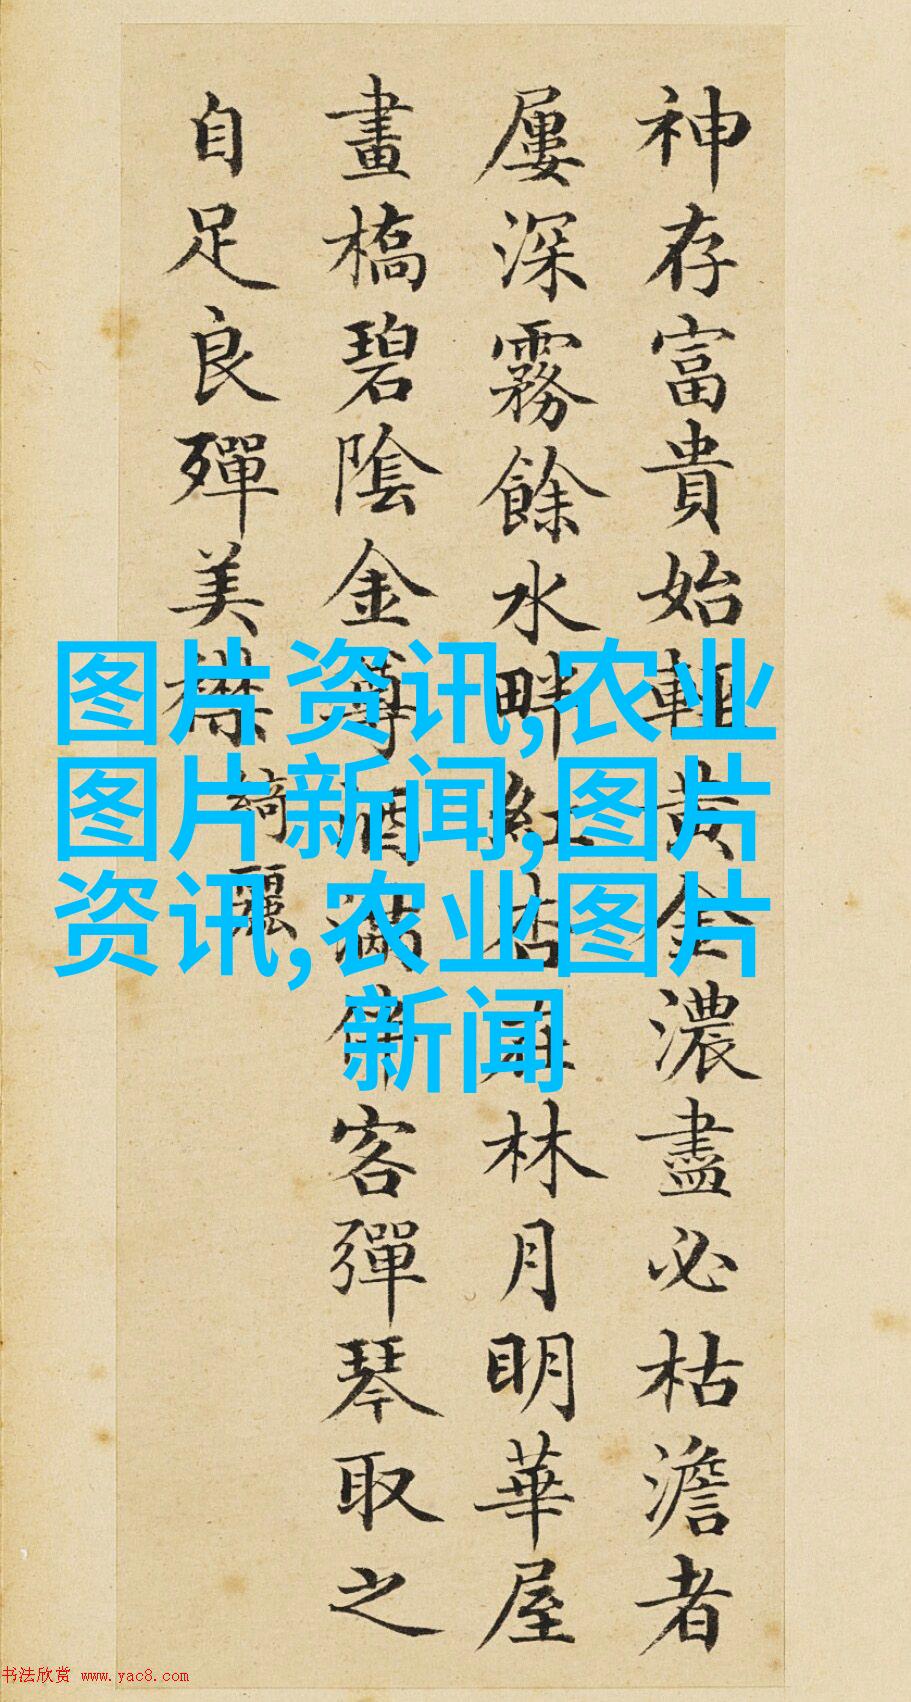 神存富貴始輕黃金濃盡必枯澹者
屢深霧餘水畔紅杏在林月明華屋
畫橋碧陰金尊酒滿伴客彈琴取之
自足良殫美襟
綺麗
图片资讯,农业
图片新闻,图片
资讯,农业图片
新闻
书法欣赏 www.yac8.com